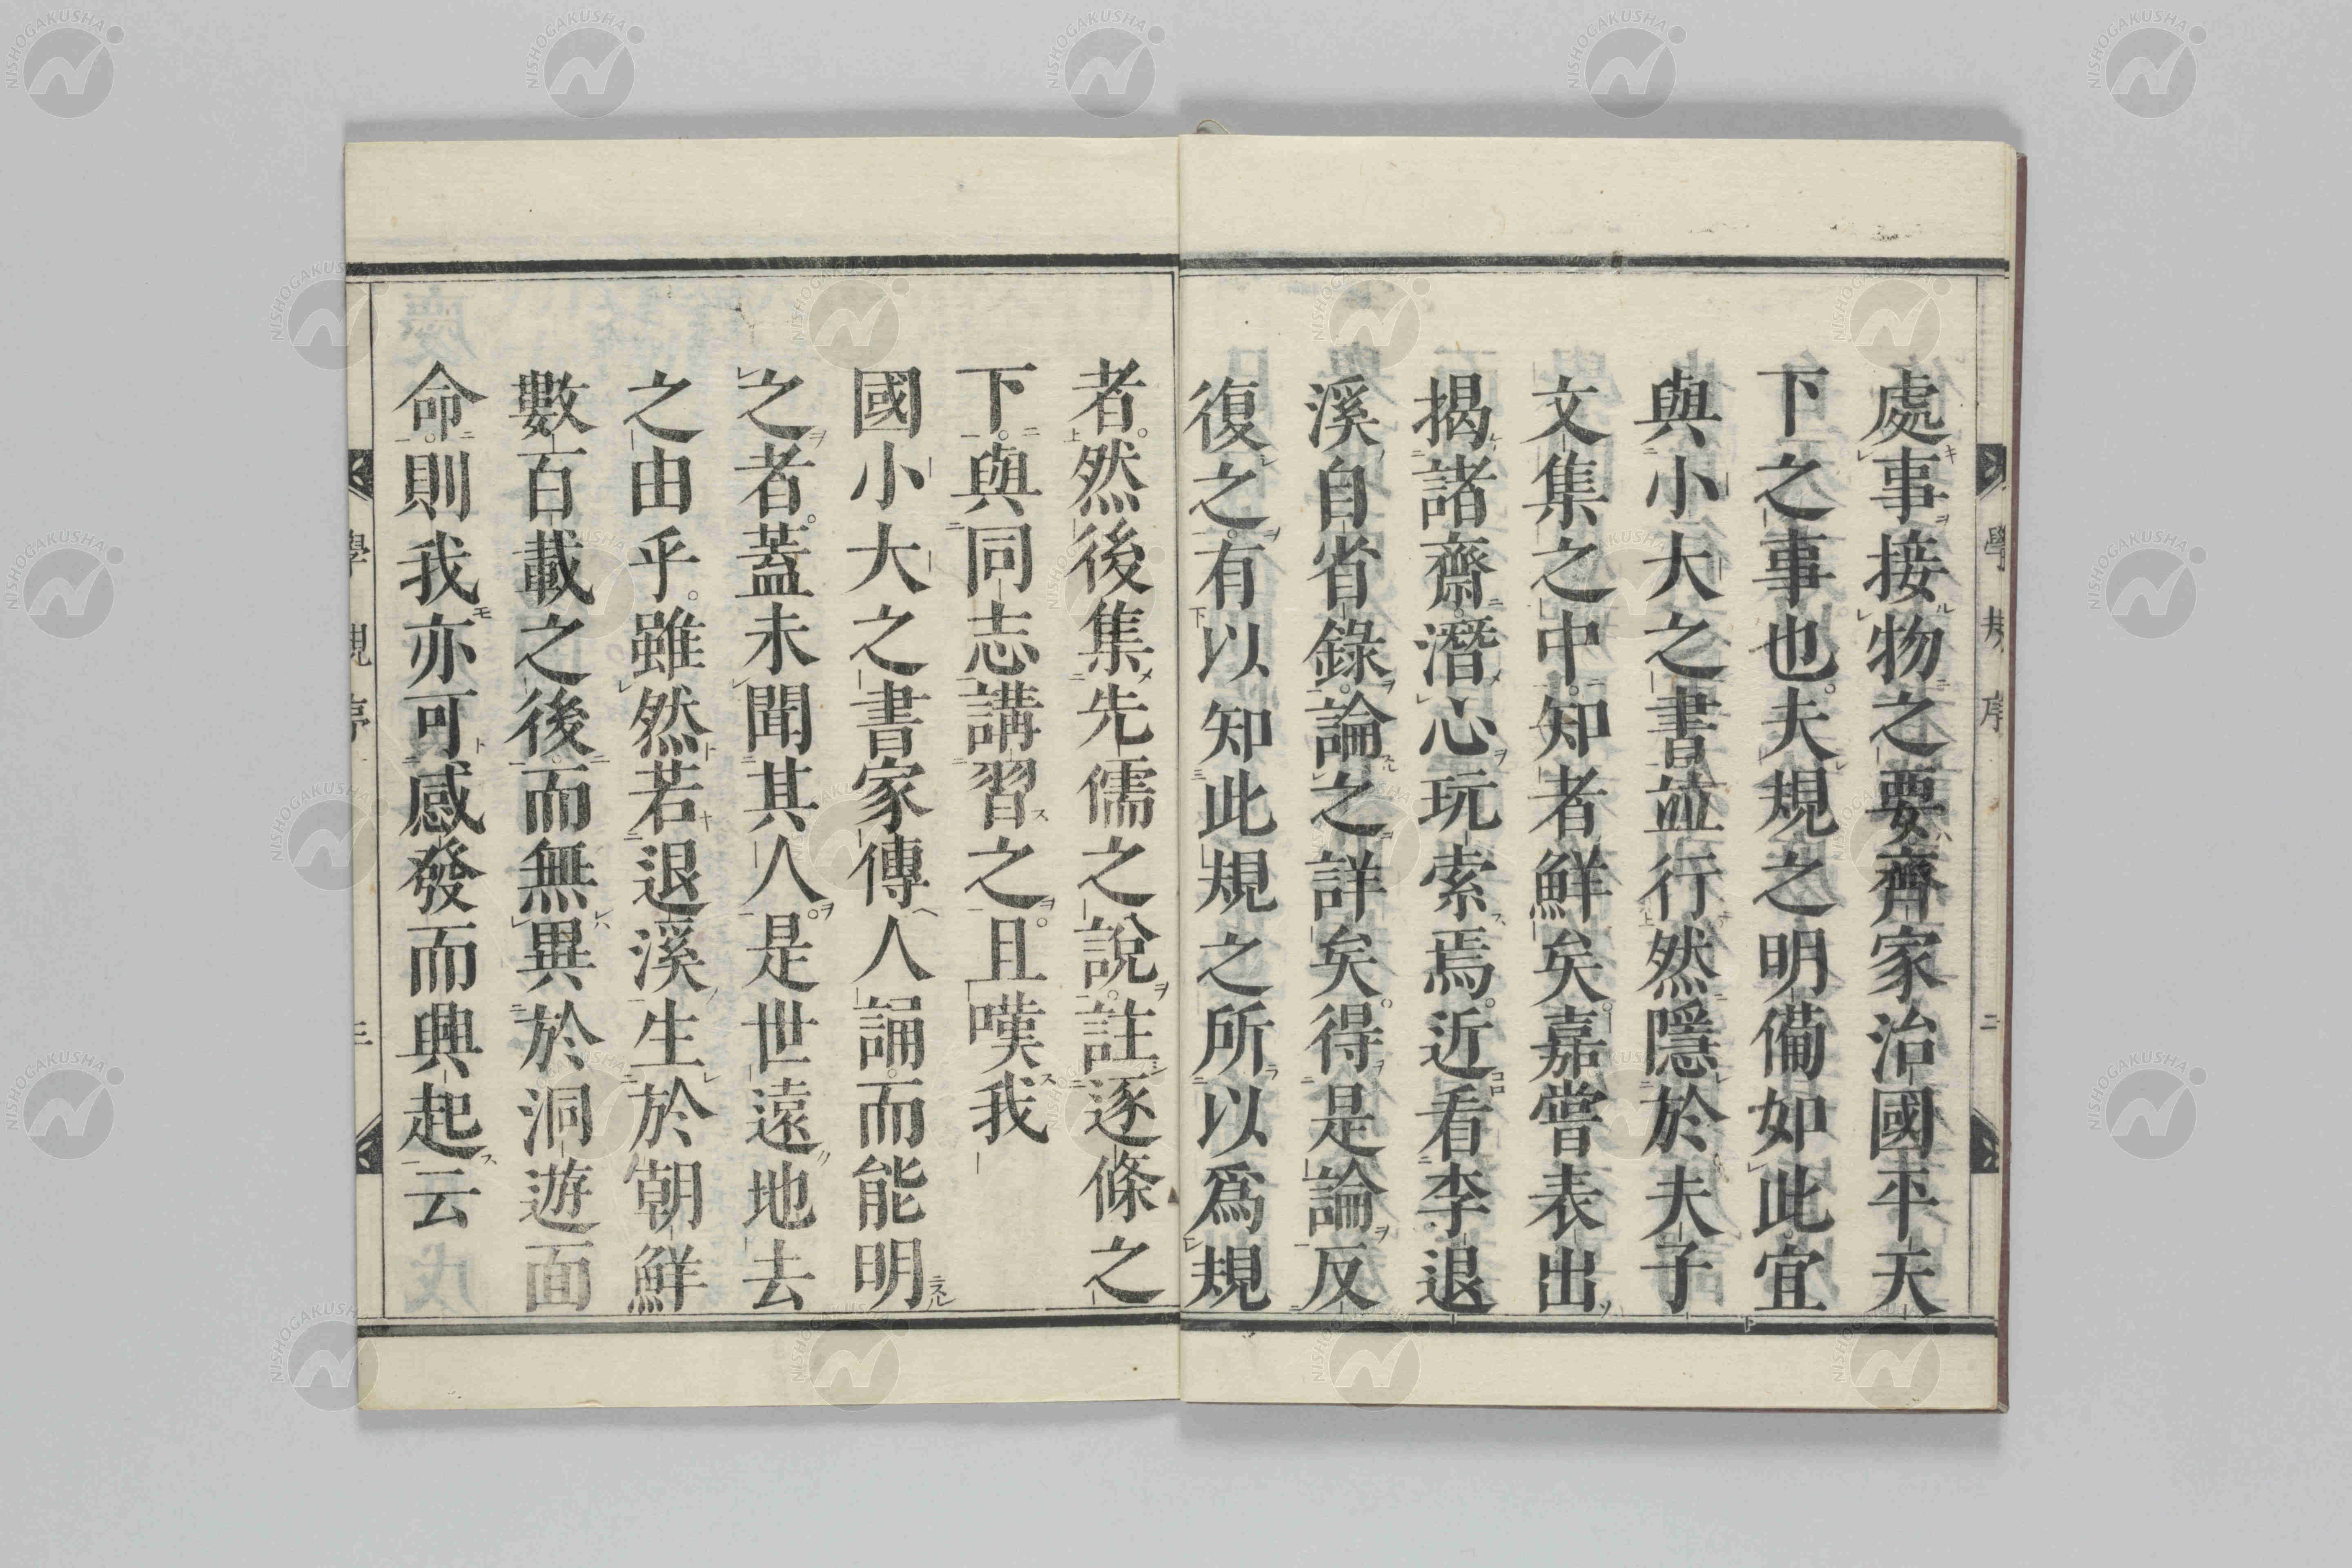 處事接物之要齊家治國平天
下之事也夫規之明備如此宜
與小大之書並行然隱於夫子
文集之中知者鮮矣嘉嘗表出
揭諸齋潛心玩索焉近看李退
溪自省錄論之詳矣得是論反
復之有以知此規之所以爲規
者然後集先儒之說註逐條之
下與同志講習之且嘆我
國小大之書家傳人誦而能明
之者蓋未聞其人是世遠地去
之由乎雖然若退溪生於朝鮮
數百載之後而無異於洞遊面
命則我亦可感發而興起云
學規序
二
三
NISHOGAKUSHA